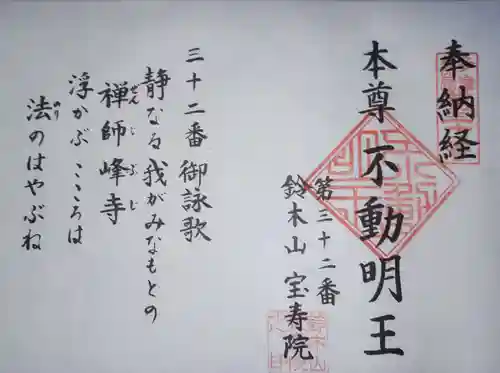 奉納経
本尊 不動明王
第三十二番
鈴木山 宝寿院
三十二番 御詠歌
静なる我がみなもとの
禅師峰寺
ぜんじぶじ
浮かぶこころは
法のはやぶね
のり